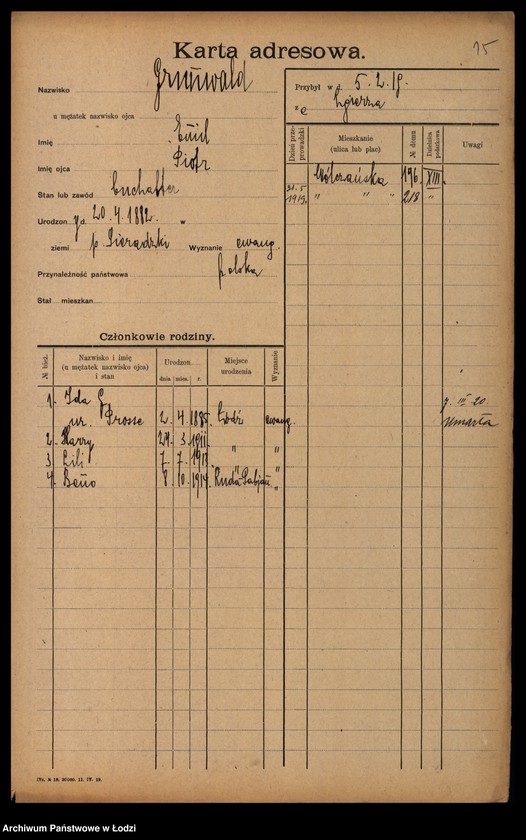 15
Karta adresowa.
Nazwisko Grunwald
u mężatek nazwisko ojca
Imię Emil
Imię ojca Piotr
Stan lub zawód buchalter
Urodzon y d. 20.4.1882. w
ziemi p. Sieradzki Wyznanie ewang.
Przynależność państwowa polska
Stał. mieszkan.
Przybył w d. 5.2.19.
z e Zgierza
Dzień przeprowadzki
Mieszkanie (ulica lub plac)
№ domu
Dzielnica podatkowa
Uwagi
Wólczańska 196. XIII.
31.5 1919. " " 218 "
Członkowie rodziny.
№ bież.
Nazwisko i imię (u mężatek nazwisko ojca) i stan
Urodzon
dnia mies. r.
Miejsce urodzenia
Wyznanie
1. Ida
ur. Prosse 2. 4. 1885. Łódź ewang. 7. III. 20. umarła
2. Harry 24. 3. 1911. " "
3. Lili 7. 7. 1913 " "
4. Beno 8. 10. 1914. Ruda-Pabjan. "
Archiwum Państwowe w Łodzi